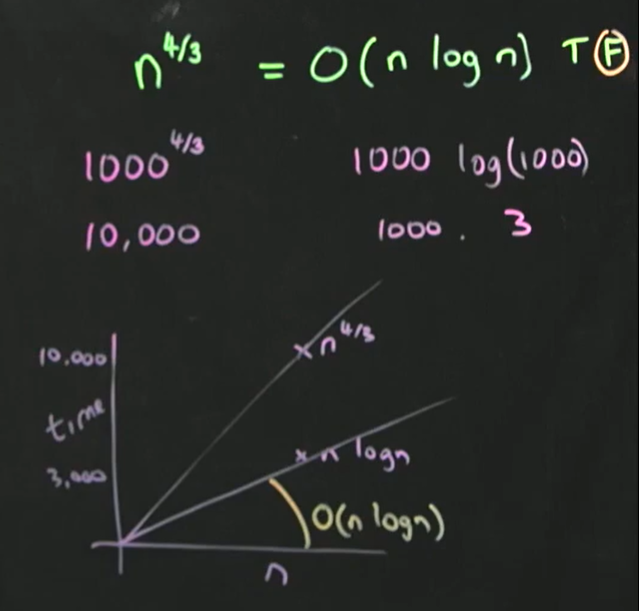 n^4/3 = O(n log n) T F
1000^4/3 1000 log(1000)
10,000 1000 . 3
10,000
n^4/3
time
3,000
n logn
O(n logn)
n